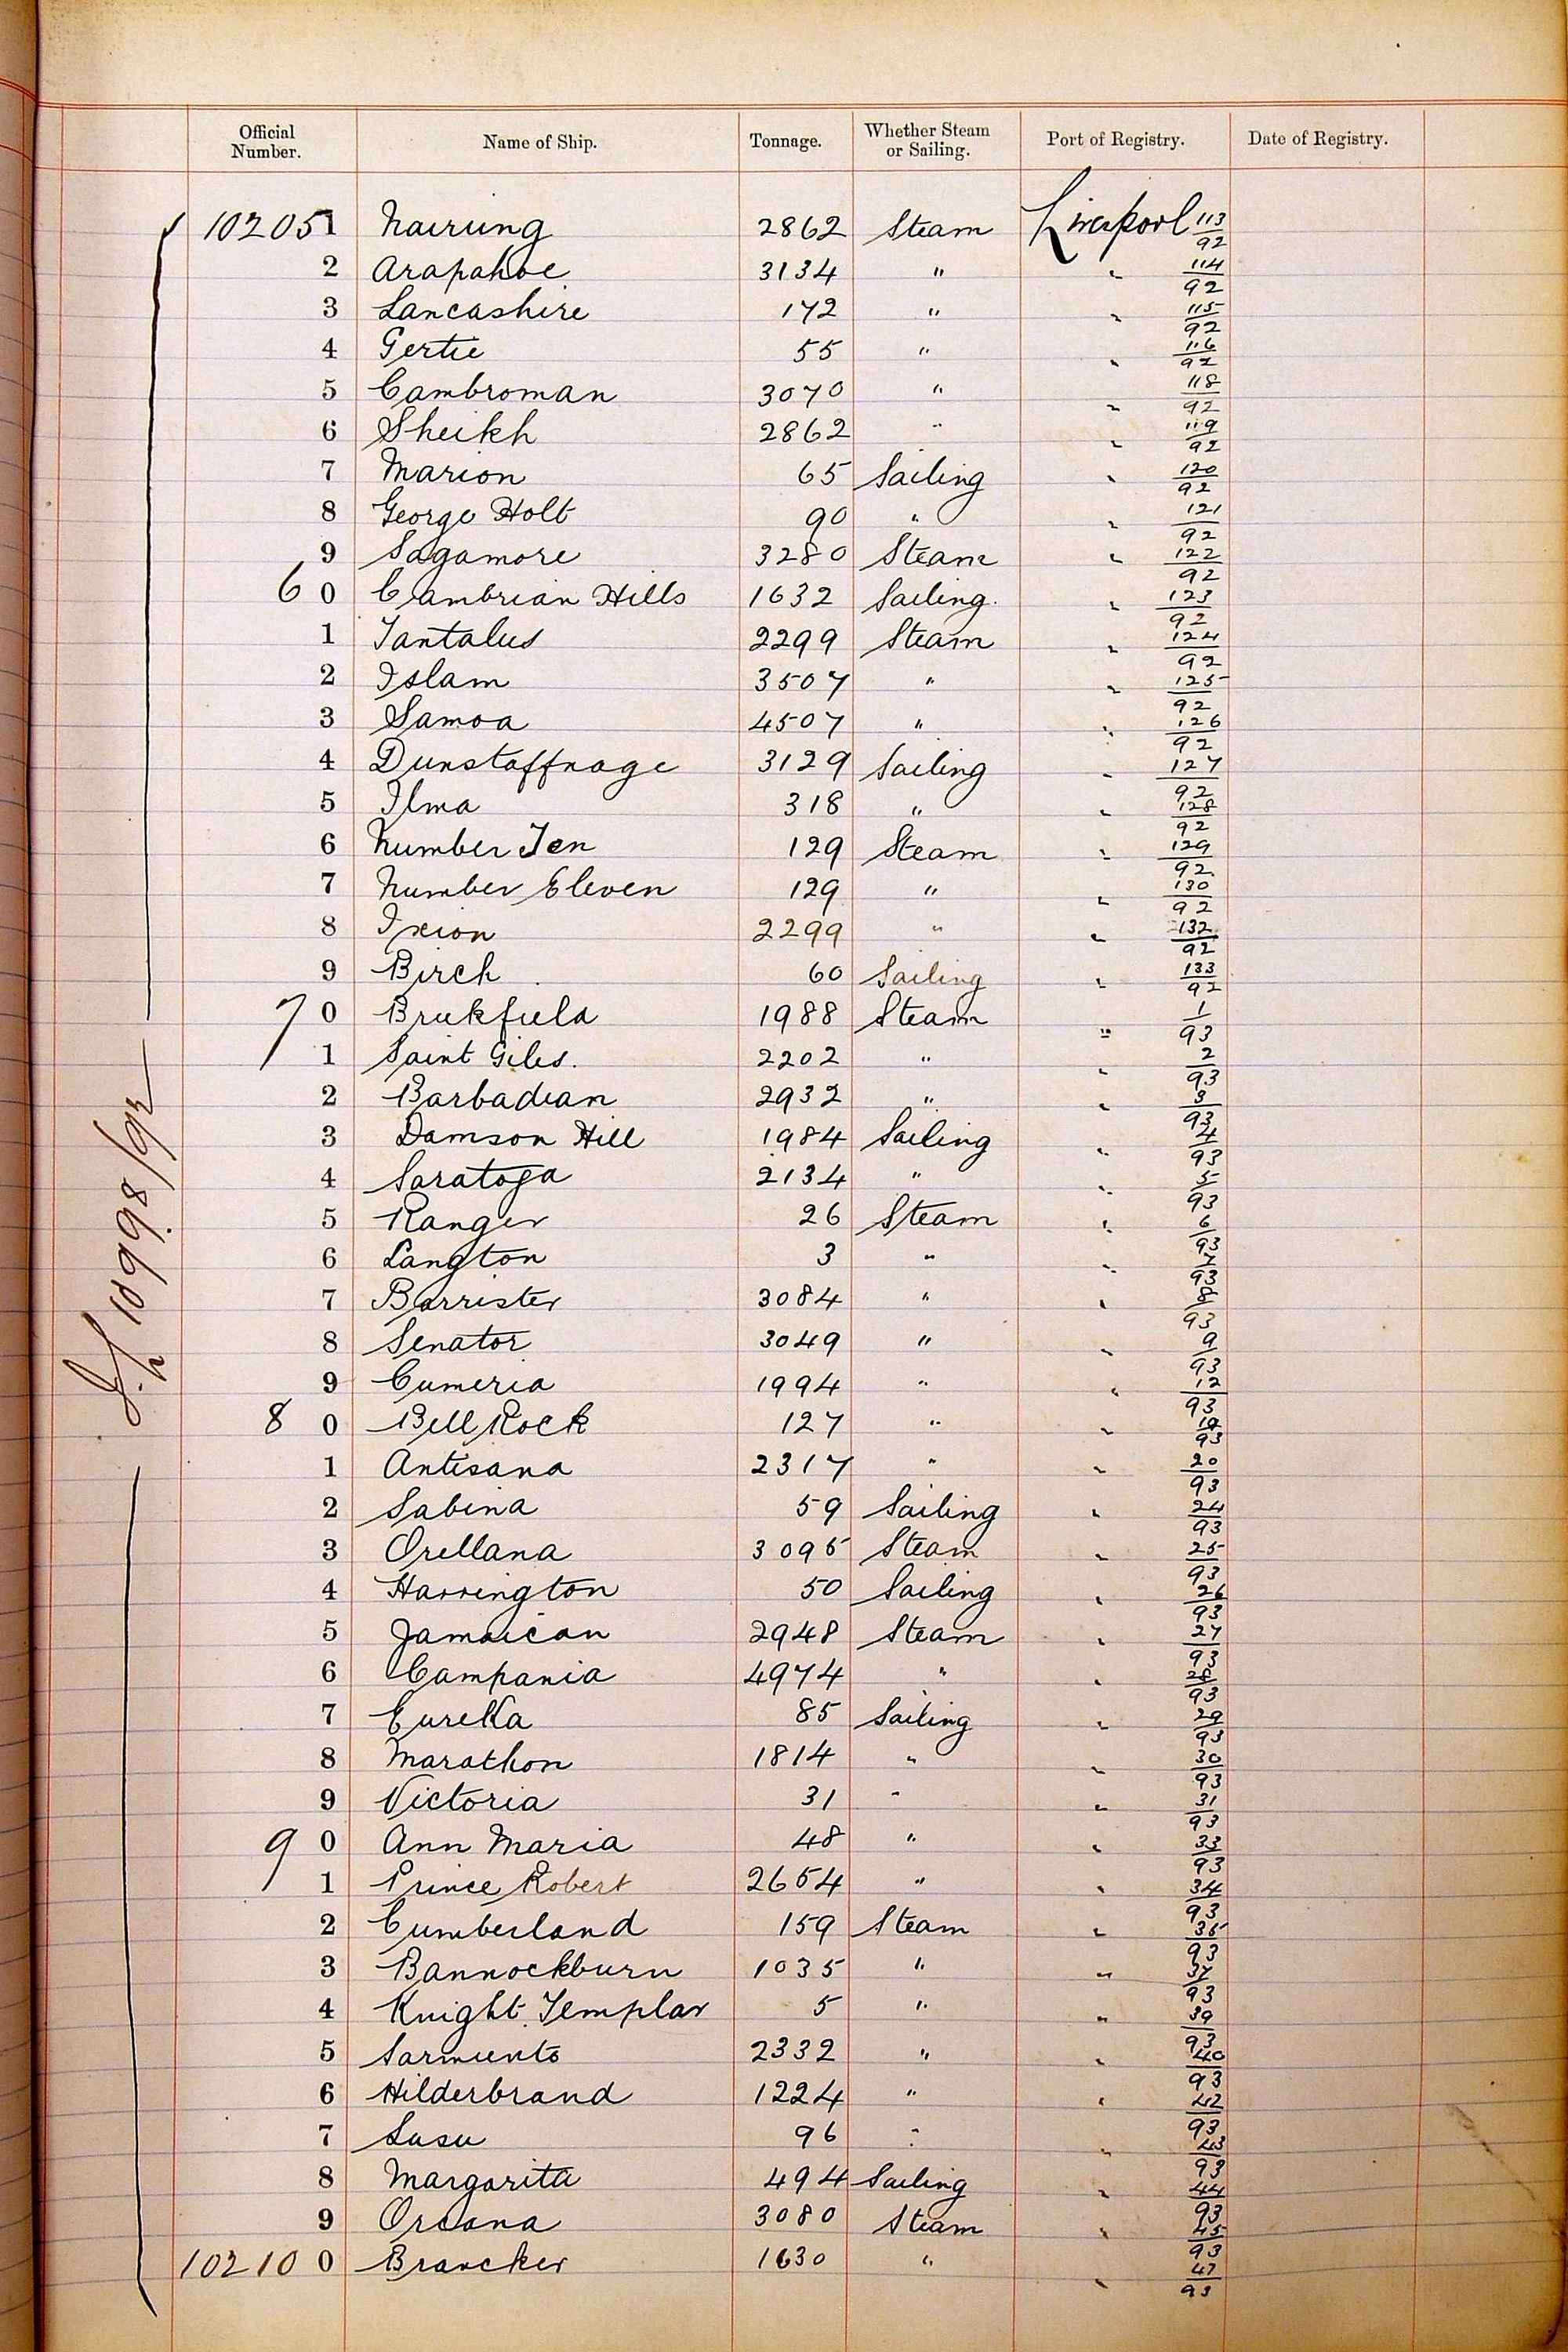 Official Number. Name of Ship. Tonnage. Whether Steam or Sailing. Port of Registry. Date of Registry.
102051 Nairung 2862 Steam Liverpool 113/92
2 Arapahoe 3134 " " 114/92
3 Lancashire 172 " " 115/92
4 Gertie 55 " " 116/92
5 Cambroman 3070 " " 118/92
6 Sheikh 2862 " " 119/92
7 Marion 65 Sailing " 120/92
8 George Holt 90 " " 121/92
9 Sagamore 3280 Steam " 122/92
60 Cambrian Hills 1632 Sailing. " 123/92
1 Tantalus 2299 Steam " 124/92
2 Islam 3507 " " 125/92
3 Samoa 4507 " " 126/92
4 Dunstaffnage 3129 Sailing " 127/92
5 Ilma 318 " " 128/92
6 Number Ten 129 Steam " 129/92
7 Number Eleven 129 " " 130/92
8 Ixion 2299 " " 132/92
9 Birch 60 Sailing " 133/92
70 Brickfield 1988 Steam " 1/93
1 Saint Giles. 2202 " " 2/93
2 Barbadian 2932 " " 3/93
3 Damson Hill 1984 Sailing " 4/93
4 Saratoga 2134 " " 5/93
5 Ranger 26 Steam " 6/93
6 Langton 3 " " 7/93
7 Barrister 3084 " " 8/93
8 Senator 3049 " " 9/93
9 Cumeria 1994 " " 12/93
80 Bell Rock 127 " " 19/93
1 Antisana 2317 " " 20/93
2 Sabina 59 Sailing " 24/93
3 Orellana 3095 Steam " 25/93
4 Harrington 50 Sailing " 26/93
5 Jamaican 2948 Steam " 27/93
6 Campania 4974 " " 28/93
7 Eureka 85 Sailing " 29/93
8 Marathon 1814 " " 30/93
9 Victoria 31 " " 31/93
90 Ann Maria 48 " " 33/93
1 Prince Robert 2654 " " 34/93
2 Cumberland 159 Steam " 35/93
3 Bannockburn 1035 " " 37/93
4 Knight Templar 5 " " 39/93
5 Sarmiento 2332 " " 40/93
6 Hilderbrand 1224 " " 42/93
7 Susu 96 " " 43/93
8 Margarita 494 Sailing " 44/93
9 Orcana 3080 Steam " 45/93
102100 Brancker 1630 " " 47/93
10998/92